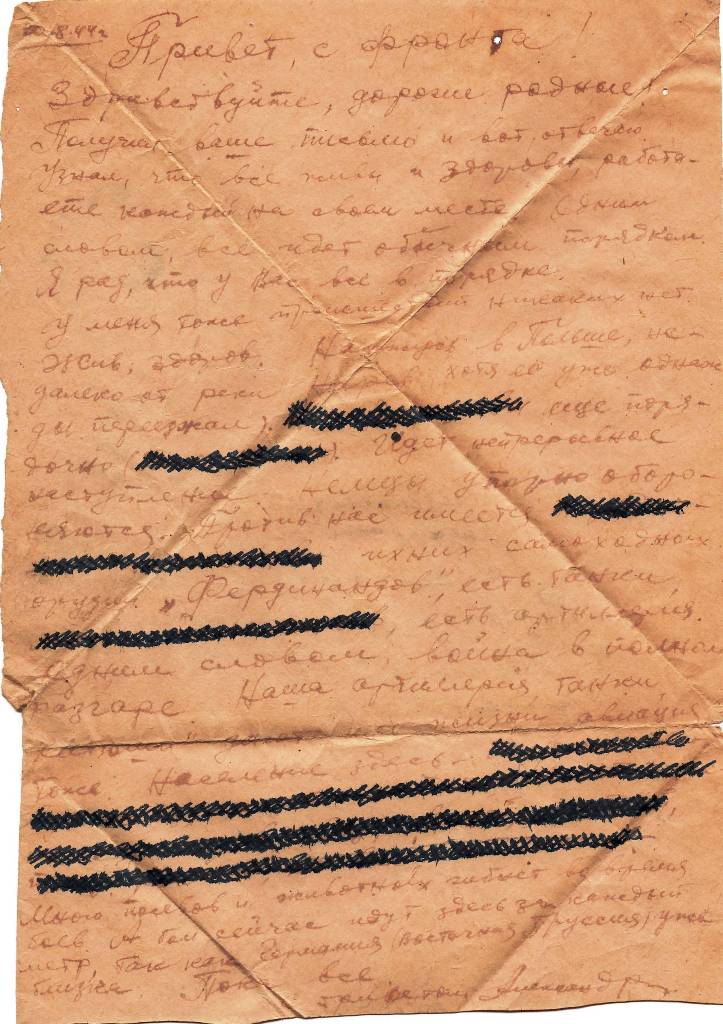 8.44г.
Привет, с фронта!
Здравствуйте, дорогие родные!
Получил ваше письмо и вот отвечаю.
Узнал, что все живы и здоровы, работа-
ете каждый на своем месте. Одним
словом, все идет обычным порядком.
Я рад, что у Вас все в порядке.
У меня тоже происшествий никаких нет.
Жив, здоров. в Польше, не-
далеко от реки хотя её уже однаж-
ды переезжал). еще поря-
дочно ( ). Идет непрерывное
наступление. Немцы упорно оборо-
няются. Против нас имеется
ихних самоходных
орудий „Фердинандов", есть танки
, есть артиллерия.
Одним словом, война в полном
разгаре. Наша артиллерия, танки
жизни, авиация
тоже. Население здесь -
Много и животных гибнет во время
боев. А бои сейчас идут здесь за каждый
метр, так как Германия (Восточная Пруссия) уже
близка. Пока все
с приветом, Александр.